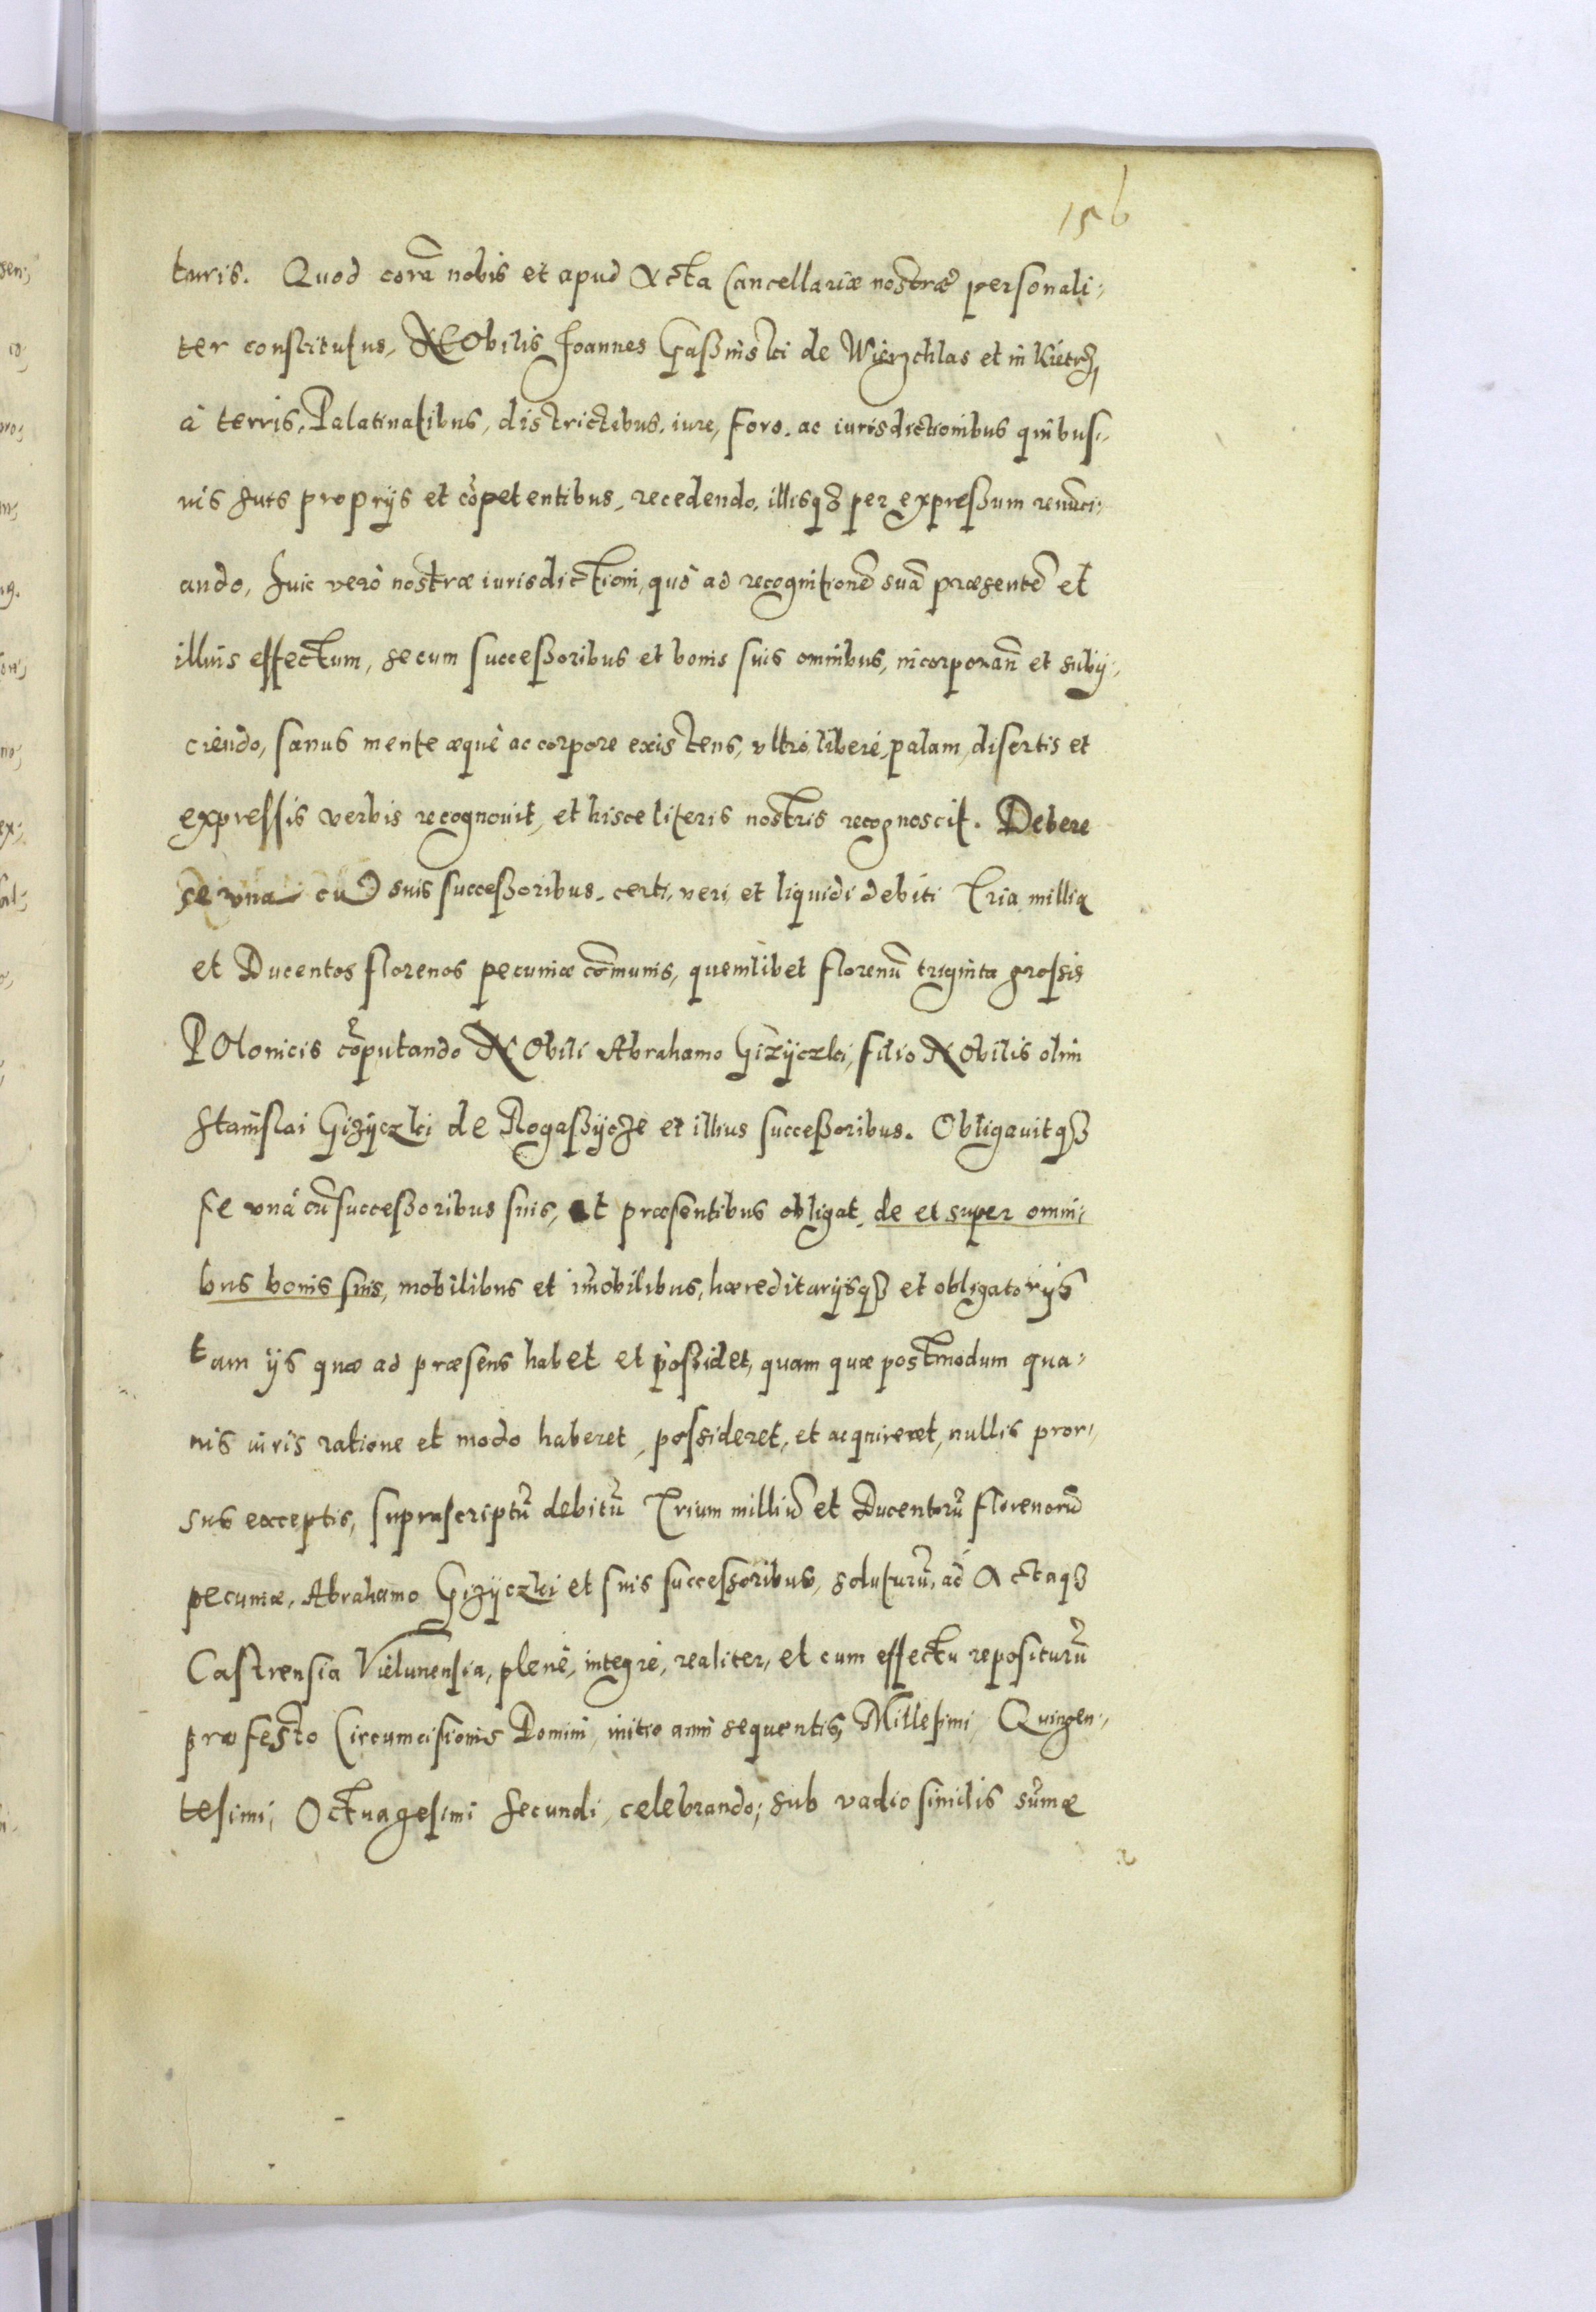 156
turis. Quod corā nobis et apud Acta Cancellariæ nostræ personali-
ter constitutus, Nobilis Joannes Gaßinski de Wierzchlas et in Kietrz,
à terris, Palatinatibus, districtibus, iure, foro, ac iurisdictionibus quibus-
uis suis proprijs et cōpetentibus, recedendo, illisqꝫ per expreßum renūci-
ando, huic verò nostræ iurisdictioni, quò ad recognitionē suā præsentē et
illius effectum, se cum succeßoribus et bonis suis omnibus, incorporan̄ et subij-
ciendo, sanus mente æquè ac corpore existens, vltrò, liberè, palam, disertis et
expressis verbis recognouit, et hisce literis nostris recognoscit. Debere
se vna cū suis succeßoribus, certi, veri, et liquidi debiti Tria millia
et Ducentos florenos pecuniæ cōmunis, quemlibet florenū triginta grossis
Polonicis cōputando Nobili Abrahamo Gizijczki, filio Nobilis olim
Stanislai Gizijczki de Rogaßijcze et illius succeßoribus. Obligauitqꝫ
se vnà cū succeßoribus suis, et præsentibus obligat, de et super omni-
bus bonis suis, mobilibus et im̄obilibus, hæreditarijsqꝫ et obligatorijs
tam ijs quæ ad præsens habet et poßidet, quam quæ postmodum qua-
uis iuris ratione et modo haberet, possideret, et acquireret, nullis pror-
sus exceptis, suprascriptū debitū Trium milliū et Ducentorū florenorū
pecuniæ, Abrahamo Gizijczki et suis successoribus, soluturū, ad Actaqꝫ
Castrensia Vielunensia, plenè, integrè, realiter, et cum effectu repositurū
pro festo Circumcisionis Domini, initio anni sequentis, Millesimi, Quingen-
tesimi, Octuagesimi secundi, celebrando; sub vadio similis sūmæ